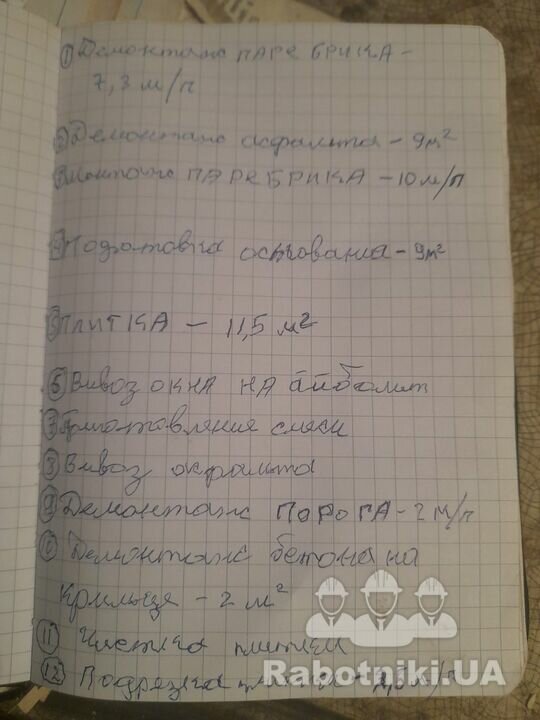 ① Демонтаж ПАРЕБРИКА -
7,3 м/п
② Демонтаж асфальта - 9м²
③ Монтаж ПАРЕБРИКА - 10 м/п
④ Подготовка основания - 9м²
⑤ ПЛИТКА - 11,5 м²
⑥ Вывоз ОКНА НА айболит
⑦ Приготовление смеси
⑧ Вывоз асфальта
⑨ Демонтаж ПОРОГА - 2 м/п
⑩ Демонтаж бетона на
крыльце - 2 м²
⑪ Чистка плитки
⑫ Подрезка
Rabotniki.UA